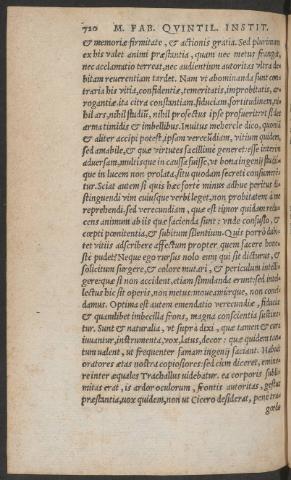 720 M. FAB. QVINTIL. INSTIT.
& memoriæ firmitate, & actionis gratia. Sed plurimum
ex his valet animi præstantia, quam nec metus frangat,
nec acclamatio terreat, nec audientium autoritas vltra de-
bitam reuerentiam tardet. Nam vt abominanda sunt con-
traria his vitia, confidentiæ, temeritatis, improbitatis, ar-
rogantiæ: ita citra constantiam, fiduciam, fortitudinem, ni-
hil ars, nihil studiū, nihil profectus ipse profuerit: vt si des
arma timidis & imbellibus. Inuitus mehercle dico, quoniā
& aliter accipi potest, ipsam verecūdiam, vitium quidem,
sed amabile, & quæ virtutes facillime generet: esse interim
aduersam, multisque in caussa fuisse, vt bona ingenij studiiq;
que in lucem non prolata, situ quodam secreti consumeren-
tur. Sciat autem si quis hæc forte minus adhuc peritus di-
stinguendi vim cuiusque verbi leget, non probitatem à me
reprehendi, sed verecundiam, quæ est timor quidam redu-
cens animum ab iis quæ facienda sunt: vnde confusio, &
cœpti pœnitentia, & subitum silentium. Quis porrò dubi-
tet vitiis adscribere affectum propter quem facere hone-
stè pudet? Neque ego rursus nolo eum qui sit dicturus, &
solicitum surgere, & colore mutari, & periculum intelli-
gere: quæ si non accident, etiam simulanda erunt: sed intel-
lectus hic sit operis, non metus: moueamurque, non conci-
damus. Optima est autem emendatio verecundiæ, fiducia:
& quamlibet imbecilla frons, magna conscientia sustine-
tur. Sunt & naturalia, vt suprà dixi, quæ tamen & cura
iuuantur, instrumenta, vox, latus, decor: quæ quidem tan-
tum valent, vt frequenter famam ingenij faciant. Habuit
oratores ætas nostra copiosiores: sed cùm diceret, emine-
re inter æquales Trachallus videbatur. ea corporis subli-
mitas erat, is ardor oculorum, frontis autoritas, gestus
præstantia, vox quidem, non vt Cicero desiderat, penè tra-
gœdo-